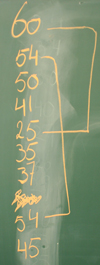 60
54
50
41
25
35
37
54
45